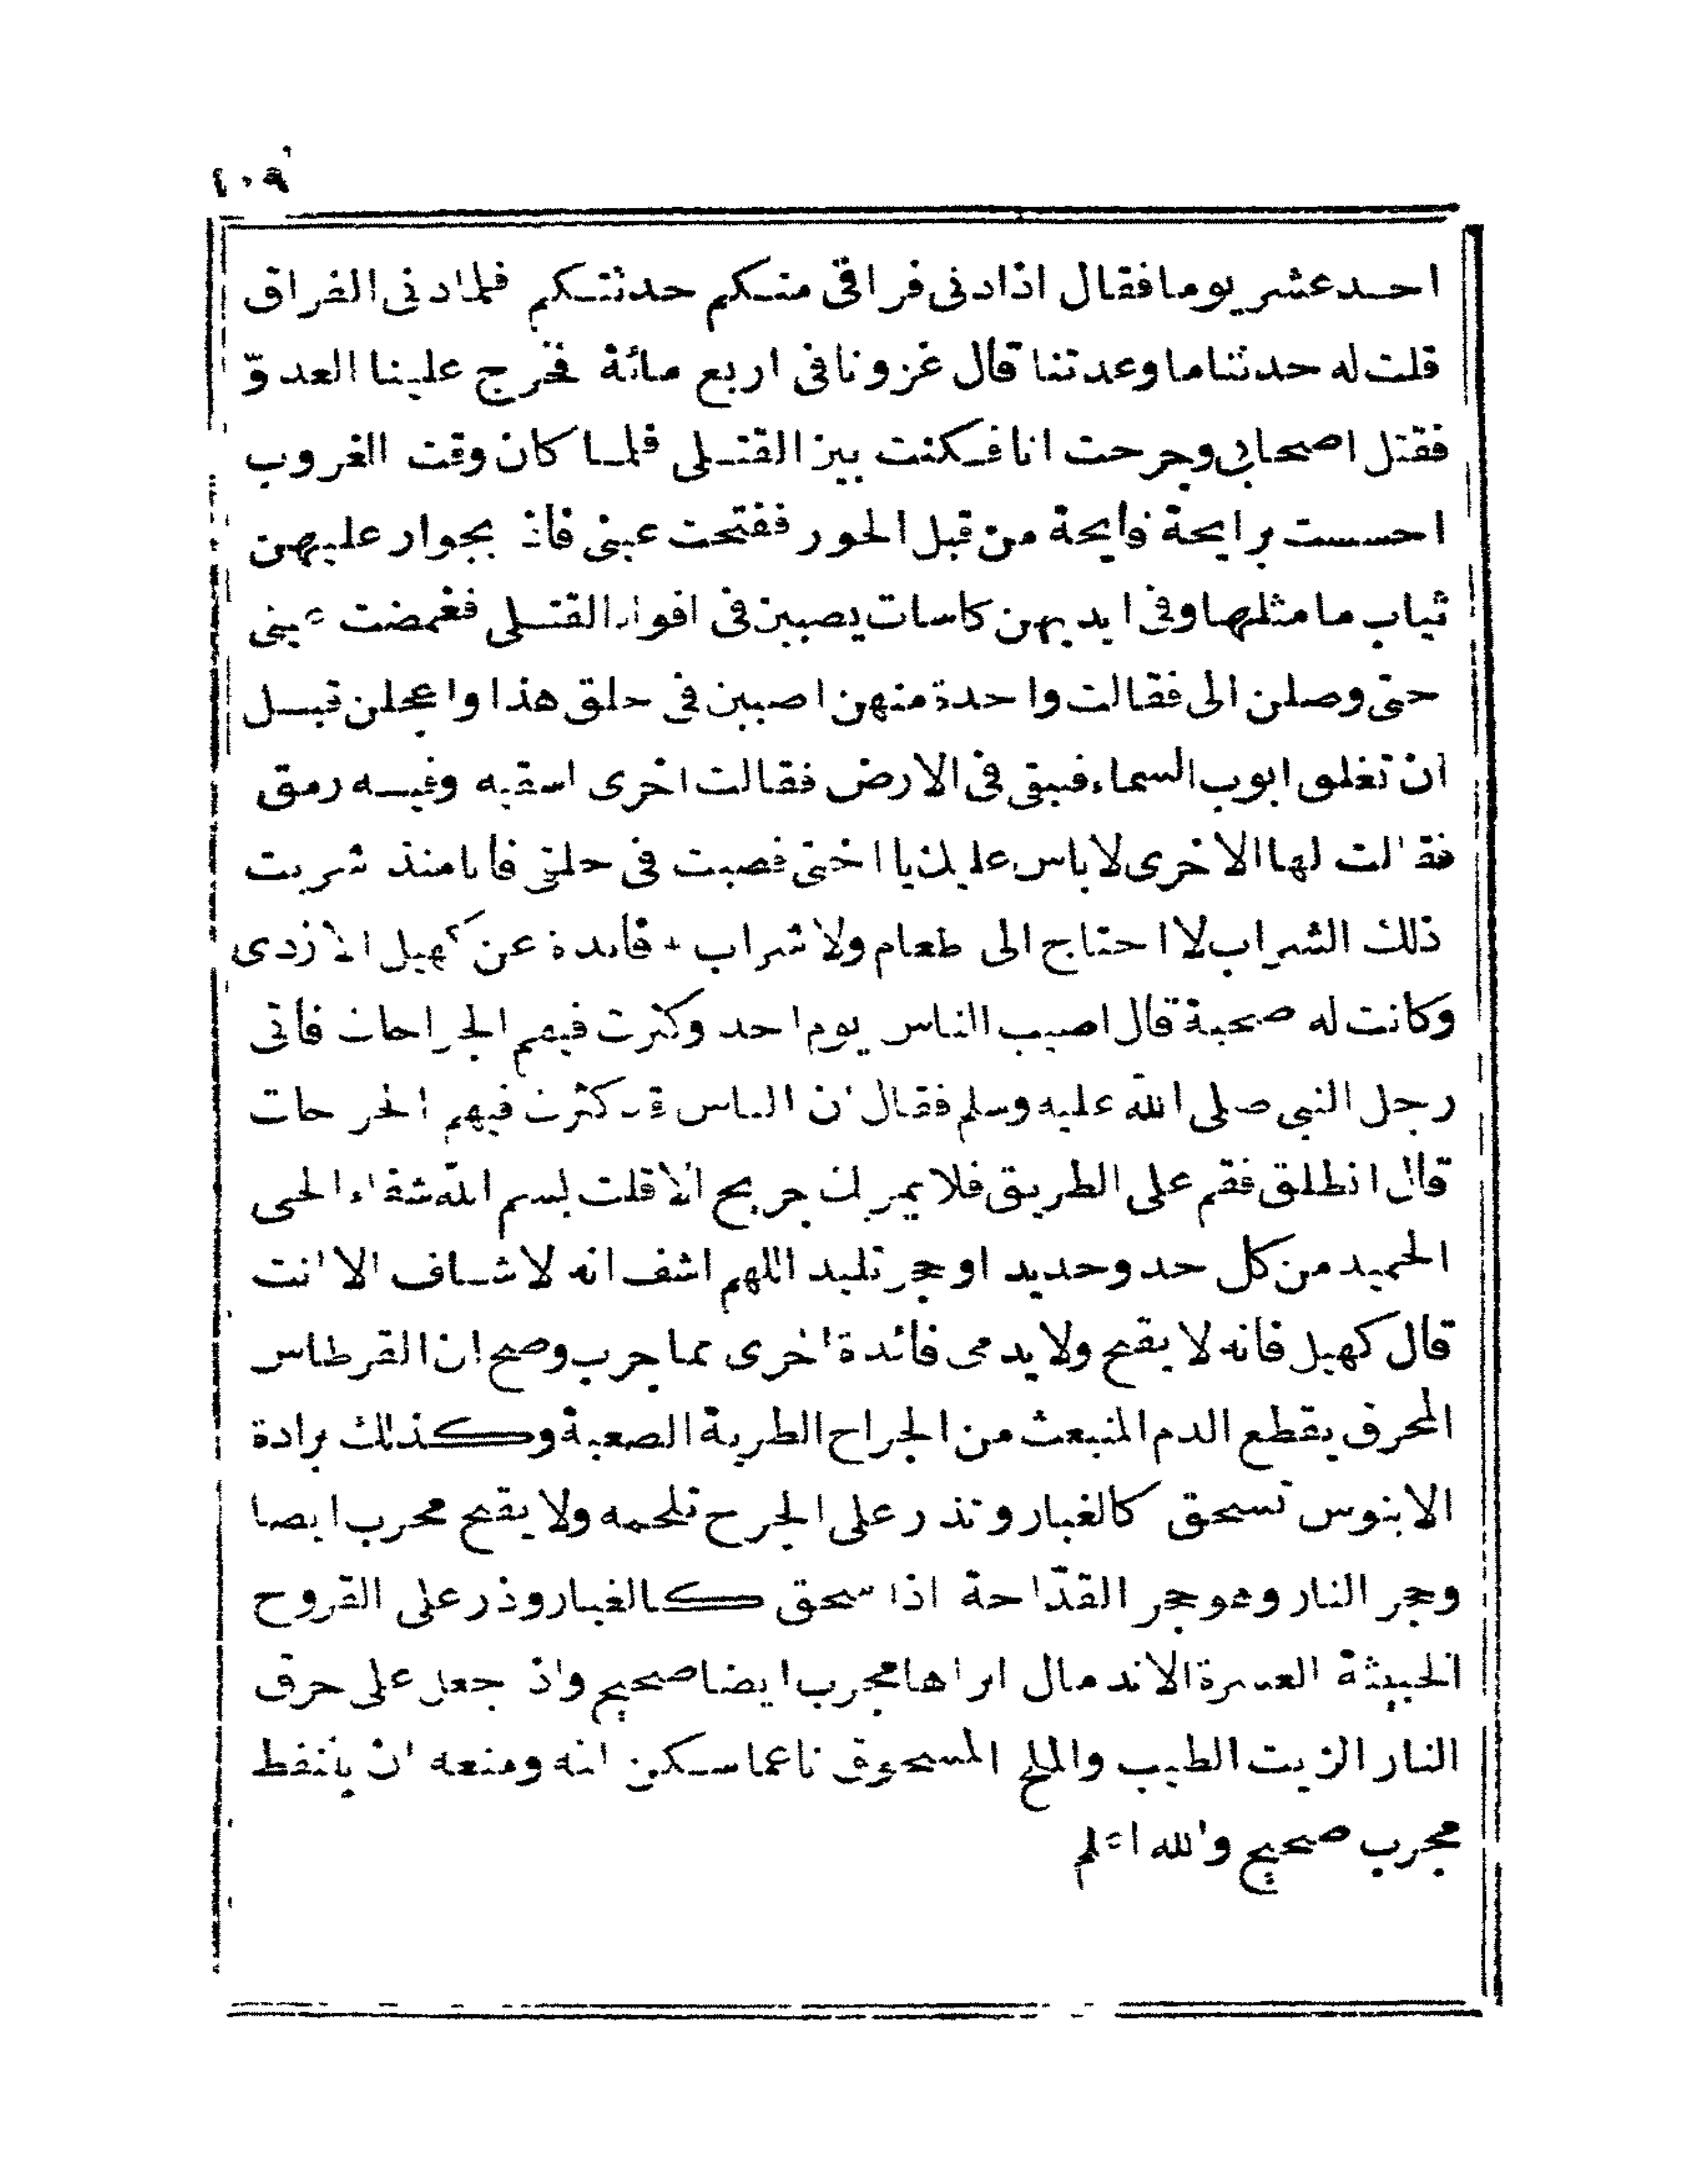 ٤٠٩
احد عشر يوما فقال اذا دنى فراقى منكم حدثتكم فلما دنى الفراق
قلت له حدثنا ما وعدتنا قال غزونا فى اربع مائة فخرج علينا العدوّ
فقتل اصحابى وجرحت انا فكنت بين القتلى فلما كان وقت الغروب
احسست برايحة فايحة من قبل الحور ففتحت عينى فاذا بجوار عليهن
ثياب ما مثلها وفى ايديهن كاسات يصببن فى افواه القتلى فغمضت عينى
حتى وصلن الى فقالت واحدة منهن اصببن فى حلق هذا واعجلن قبل
ان تغلق ابوب السماء فيبقى فى الارض فقالت اخرى اسقيه وفيه رمق
فقالت لها الاخرى لا باس عليك يا اختى فصبت فى حلقى فانا منذ شربت
ذلك الشراب لا احتاج الى طعام ولا شراب + فايدة عن كهيل الازدى
وكانت له صحبة قال اصيب الناس يوم احد وكثرت فيهم الجراحات فاتى
رجل النبى صلى الله عليه وسلم فقال ان الناس قد كثرت فيهم الجراحات
قال انطلق فقم على الطريق فلا يمر بك جريح الا قلت بسم الله شفاء الحى
الحميد من كل حد وحديد او حجر تليد اللهم اشف انه لا شاف الا انت
قال كهيل فانه لا يقيح ولا يدمى فائدة اخرى مما جرب وصح ان القرطاس
المحرق يقطع الدم المنبعث من الجراح الطرية الصعبة وكذلك برادة
الابنوس تسحق كالغبار وتذر على الجرح تلحمه ولا يقيح مجرب ايضا
وحجر النار وهو حجر القدّاحة اذا سحق كالغبار وذر على القروح
الخبيثة العسرة الاندمال ابراها مجرب ايضا صحيح واذا جعل على حرق
النار الزيت الطيب والملح المسحوق ناعما سكن المه ومنعه ان يتنفط
مجرب صحيح والله اعلم